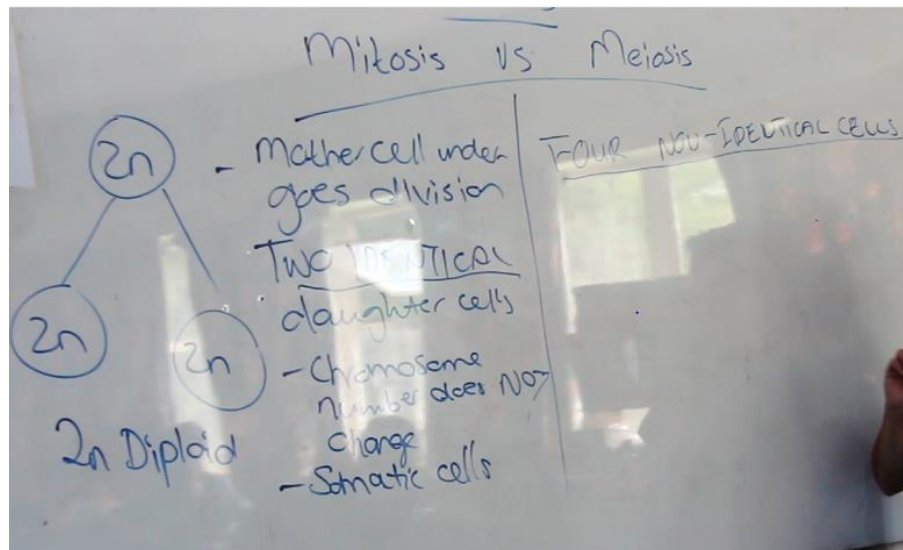 Mitosis vs Meiosis
2n
- Mother cell under
goes division
TWO IDENTICAL
daughter cells
- Chromosome
number does NOT
change
- Somatic cells
2n
2n
2n Diploid
FOUR NON-IDENTICAL CELLS